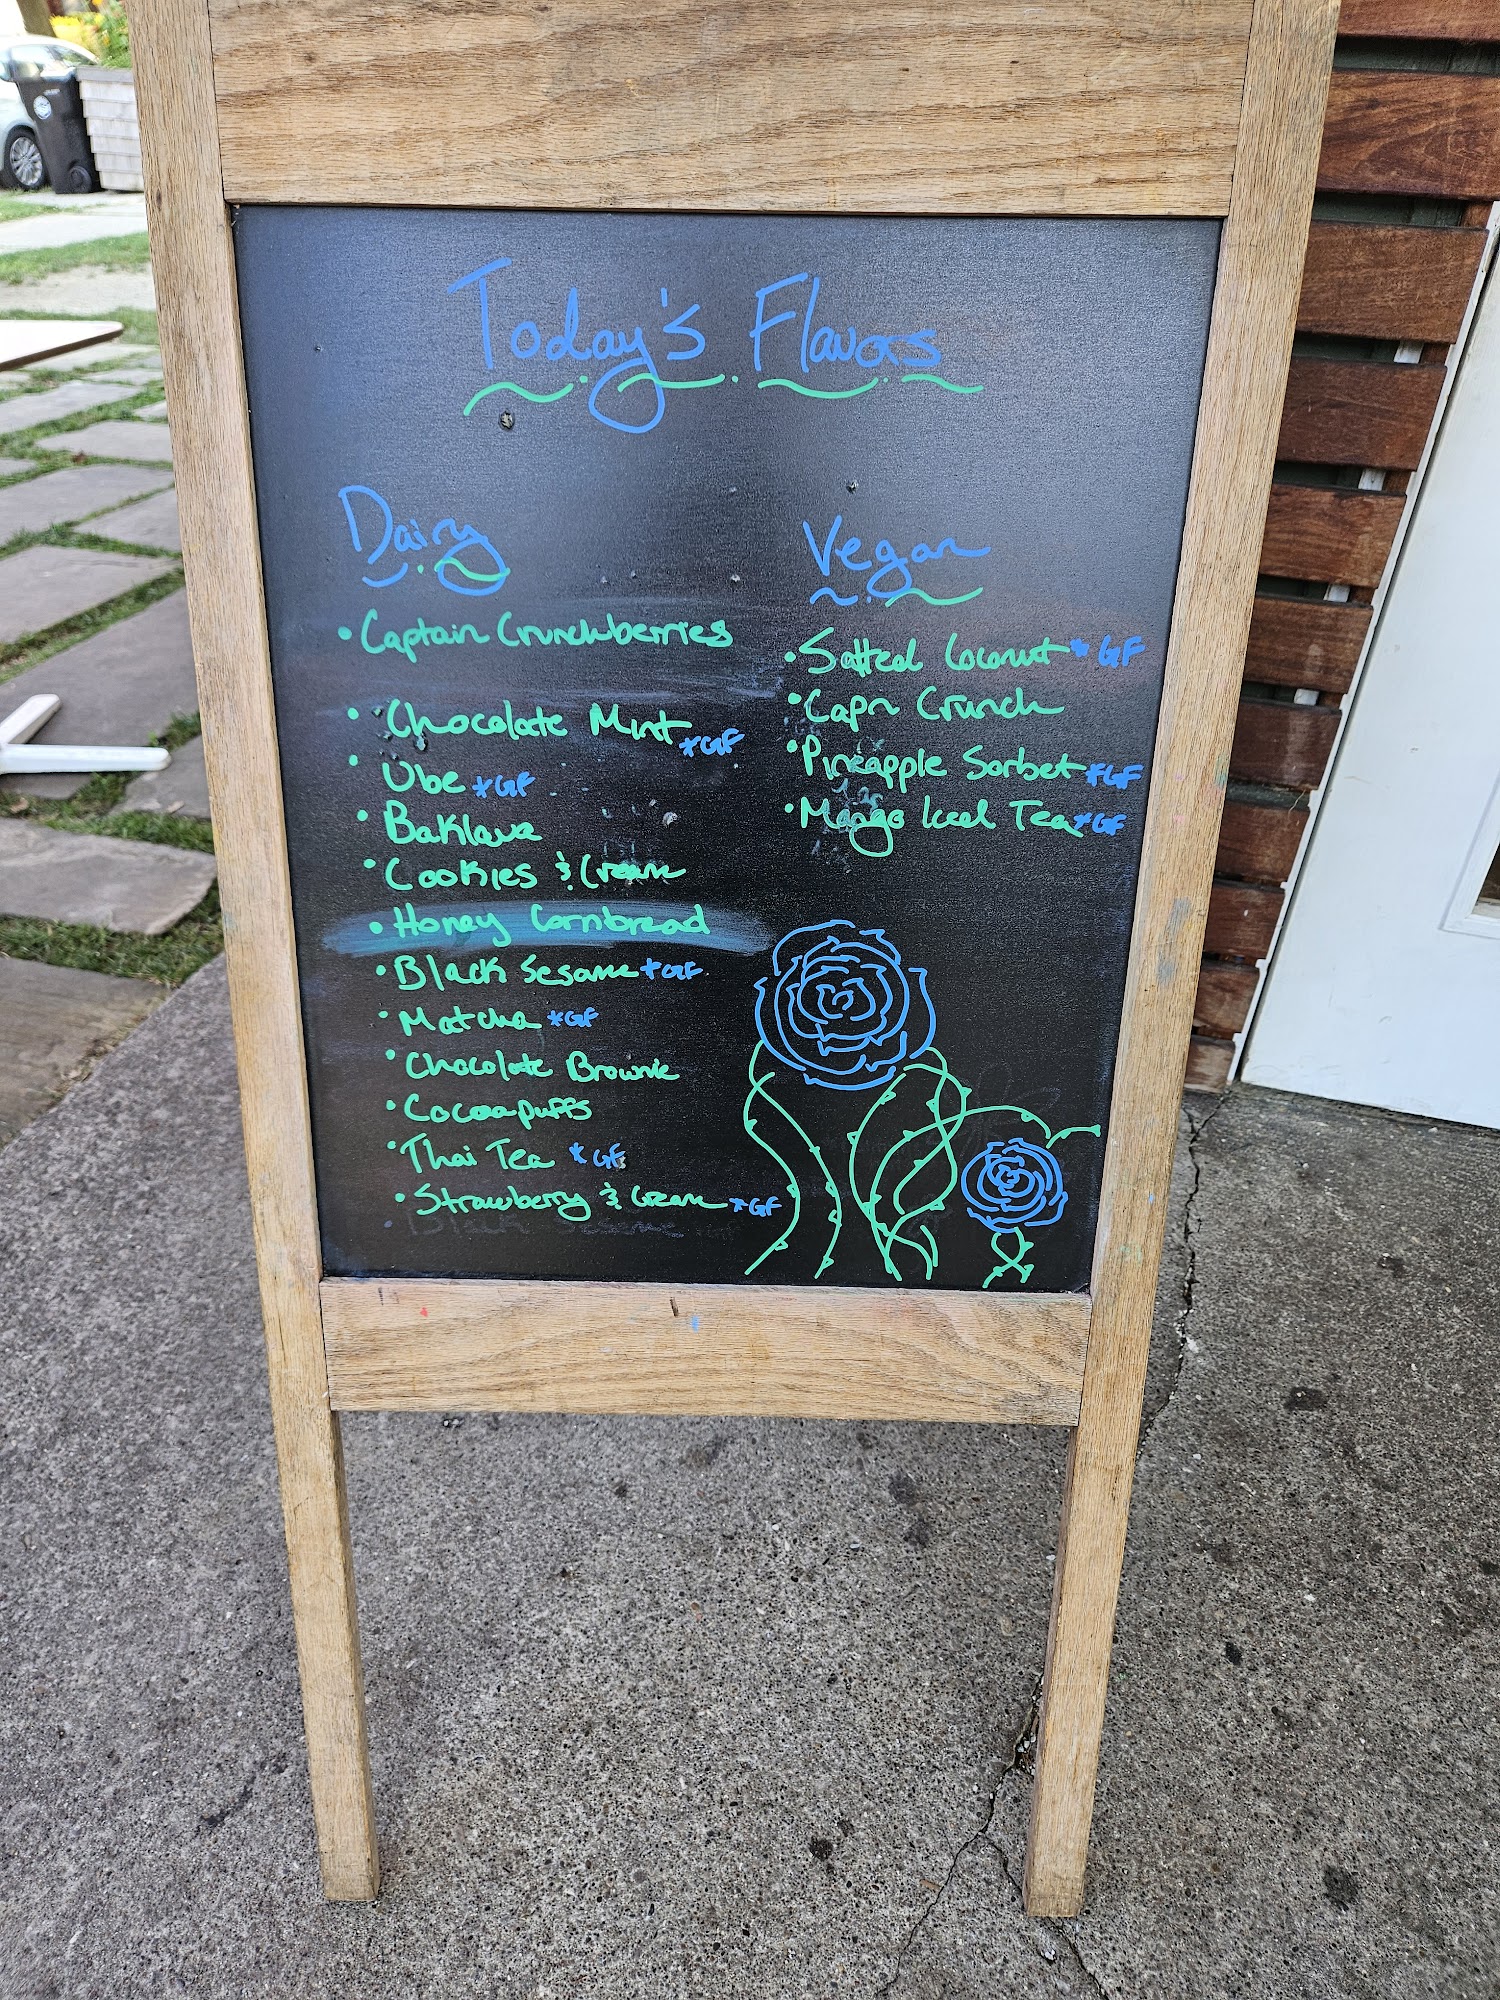 Today's Flavors
Dairy
• Captain Crunchberries
• Chocolate Mint *GF
• Ube *GF
• Baklava
• Cookies & Cream
• Honey Cornbread
• Black Sesame *GF
• Matcha *GF
• Chocolate Brownie
• Cocoapuffs
• Thai Tea *GF
• Strawberry & Cream *GF
• Black Sesame GF
Vegan
• Salted Coconut *GF
• Capn Crunch
• Pineapple Sorbet *GF
• Mango Iced Tea *GF